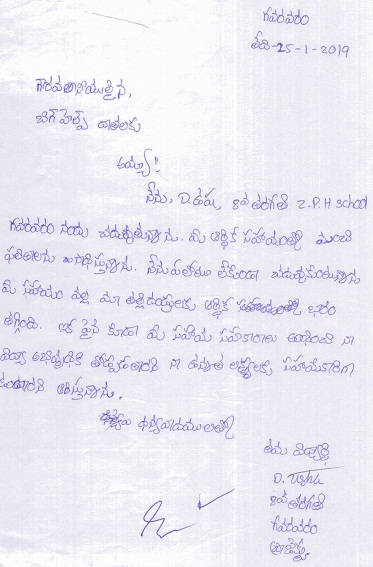 గవరవరం
తేది-25-1-2019
గౌరవనీయులైన,
బిగ్ హెల్ప్ దాతలకు
అమ్మా!!
నేను, D. ఉష, 8వ తరగతి Z.P.H School
గవరవరం నందు చదువుతున్నాను. మీ ఆర్థిక సహాయంతో మంచి
ఫలితాలను సాధిస్తున్నాను. నేను లేకుండా చదువుకుంటున్నాను
మీ సహాయం వల్ల మా తల్లిదండ్రులకు ఆర్థిక భారం
తగ్గింది. ఇక పైన కూడా మీ సహాయ సహకారాలు అందించి నా
విద్యా అభివృద్ధికి తోడ్పడతారని నా ఉన్నత లక్ష్యాలకు సహాయకారిగా
ఉంటారని ఆశిస్తున్నాను.
ధన్యవాదములతో
తమ విద్యార్థి
D. Usha
8వ తరగతి
గవరవరం